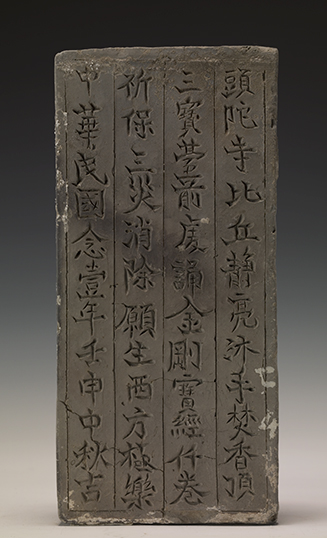 頭陀寺比丘靜亮沐手焚香頂
三寶塋前虔誦金剛寶經仟卷
祈保三災消除願生西方極樂
中華民國念壹年壬申中秋吉